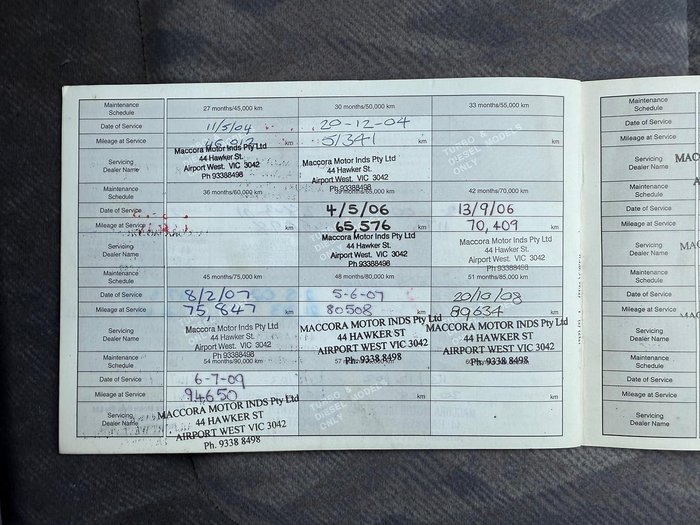 Maintenance Schedule 27 months/45,000 km 30 months/50,000 km 33 months/55,000 km
Date of Service 11/5/04 20-12-04
Mileage at Service km 51341 km km
Servicing Dealer Name
Maccora Motor Inds Pty Ltd Maccora Motor Inds Pty Ltd
44 Hawker St. 44 Hawker St.
Airport West. VIC 3042 Airport West. VIC 3042
Ph 93388498 Ph.93388498
TURBO & DIESEL MODELS ONLY
Maintenance Schedule 36 months/60,000 km 42 months/70,000 km
Date of Service 4/5/06 13/9/06
Mileage at Service km 65,576 km 70,409 km
Servicing Dealer Name
Maccora Motor Inds Pty Ltd Maccora Motor Inds Pty Ltd
44 Hawker St. 44 Hawker St.
Airport West. VIC 3042 Airport West. VIC 3042
Ph 93388498 Ph 93388498
Maintenance Schedule 45 months/75,000 km 48 months/80,000 km 51 months/85,000 km
Date of Service 8/2/07 5-6-07 20/10/08
Mileage at Service 75,847 km 80508 km 89634 km
Servicing Dealer Name
Maccora Motor Inds Pty Ltd MACCORA MOTOR INDS Pty Ltd MACCORA MOTOR INDS Pty Ltd
44 Hawker St. 44 HAWKER ST 44 HAWKER ST
Airport West. VIC 3042 AIRPORT WEST VIC 3042 AIRPORT WEST VIC 3042
Ph 93388498 Ph. 9338 8498 Ph. 9338 8498
Maintenance Schedule 54 months/90,000 km
Date of Service 6-7-09
Mileage at Service 94650 km km
Servicing Dealer Name
MACCORA MOTOR INDS Pty Ltd
44 HAWKER ST
AIRPORT WEST VIC 3042
Ph. 9338 8498
TURBO & DIESEL MODELS ONLY
Maintenance Schedule
Date of Service
Mileage at Service
Servicing Dealer Name
Maintenance Schedule
Date of Service
Mileage at Service
Servicing Dealer Name
Maintenance Schedule
Date of Service
Mileage at Service
Servicing Dealer Name
Maintenance Schedule
Date of Service
Mileage at Service
Servicing Dealer Name